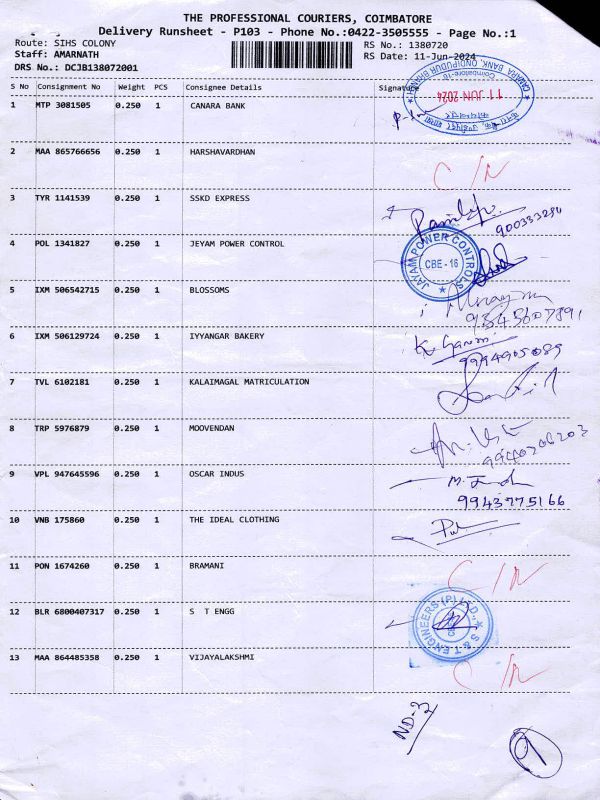 THE PROFESSIONAL COURIERS, COIMBATORE
Delivery Runsheet - P103 - Phone No.:0422-3505555 - Page No.:1
Route: SIHS COLONY RS No.: 1380720
Staff: AMARNATH RS Date: 11-Jun-2024
DRS No.: DCJB138072001
S No Consignment No Weight PCS Consignee Details Signature
1 MTP 3081505 0.250 1 CANARA BANK
CANARA BANK, ONDIPUDUR BRANCH
Coimbatore-16
11 JUN 2024
2 MAA 865766656 0.250 1 HARSHAVARDHAN
C/N
3 TYR 1141539 0.250 1 SSKD EXPRESS
4 POL 1341827 0.250 1 JEYAM POWER CONTROL
JAYAM POWER CONTROLS
CBE - 16
5 IXM 506542715 0.250 1 BLOSSOMS
9345607891
6 IXM 506129724 0.250 1 IYYANGAR BAKERY
9994905089
7 TVL 6102181 0.250 1 KALAIMAGAL MATRICULATION
8 TRP 5976879 0.250 1 MOOVENDAN
9940206203
9 VPL 947645596 0.250 1 OSCAR INDUS
9943775166
10 VNB 175860 0.250 1 THE IDEAL CLOTHING
11 PON 1674260 0.250 1 BRAMANI
C/N
12 BLR 6800407317 0.250 1 S T ENGG
S & T ENGINEERS (P) LTD.,
13 MAA 864485358 0.250 1 VIJAYALAKSHMI
C/N
ND-32
9